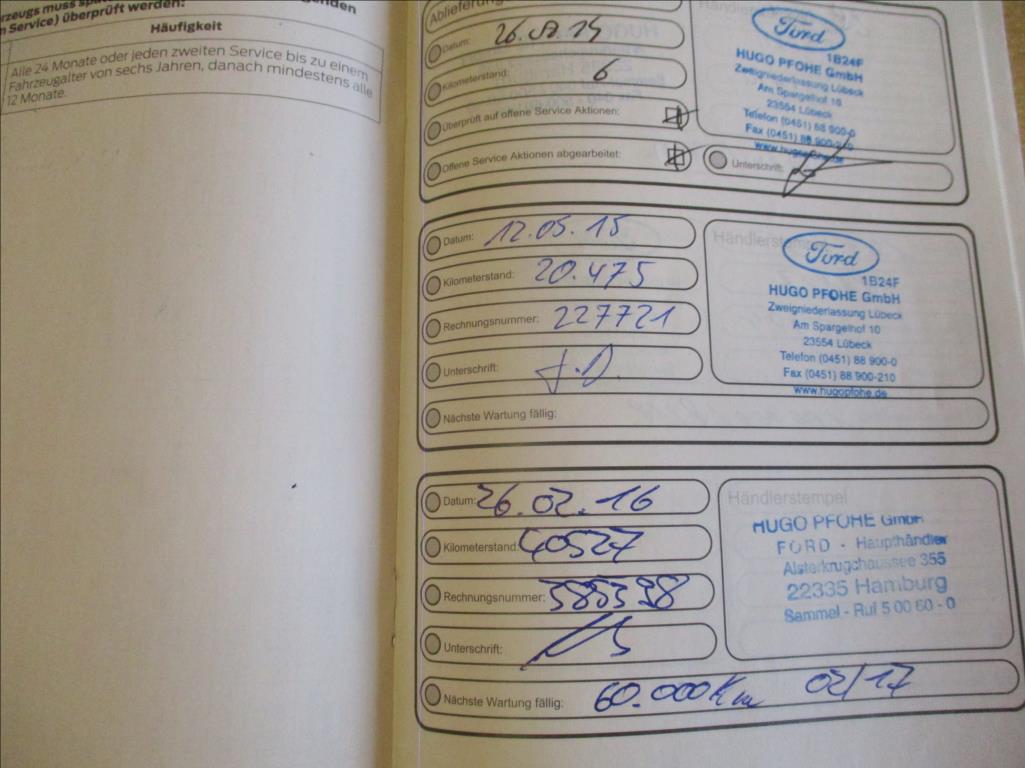 Service) überprüft werden:
Häufigkeit
Alle 24 Monate oder jeden zweiten Service bis zu einem
Fahrzeugalter von sechs Jahren, danach mindestens alle
12 Monate.
Datum:
Kilometerstand: 6
Überprüft auf offene Service Aktionen:
Offene Service Aktionen abgearbeitet:
Ford
1B24F
HUGO PFOHE GmbH
Zweigniederlassung Lübeck
Am Spargelhof 10
23554 Lübeck
Telefon (0451) 88 900-0
Fax (0451) 88 900-210
www.hugopfohe.de
Unterschrift:
Datum: 12.05.15
Kilometerstand: 20.475
Rechnungsnummer: 227721
Unterschrift:
Nächste Wartung fällig:
Händlerstempel
Ford
1B24F
HUGO PFOHE GmbH
Zweigniederlassung Lübeck
Am Spargelhof 10
23554 Lübeck
Telefon (0451) 88 900-0
Fax (0451) 88 900-210
www.hugopfohe.de
Datum: 26.02.16
Kilometerstand: 40527
Rechnungsnummer:
Unterschrift:
Nächste Wartung fällig: 60.000 Km 02/17
Händlerstempel
HUGO PFOHE GmbH
FORD - Haupthändler
Alsterkrugchaussee 355
22335 Hamburg
Sammel - Ruf 5 00 60 - 0